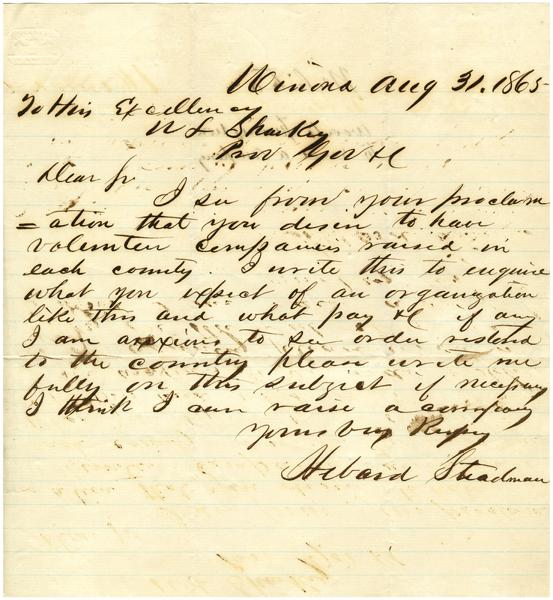 Winona Aug 31. 1865
To His Excellency
W L Sharkey
Prov Gov &C
Dear Sr
I see from your proclam
=ation that you desire to have
volunteer companies raised in
each county. I write this to enquire
what you expect of an organization
like this and what pay &C if any
I am anxious to see order restord
to the country please write me
fully on this subject if necessary
I think I can raise a company
yours very Respy
Hebard Steadman